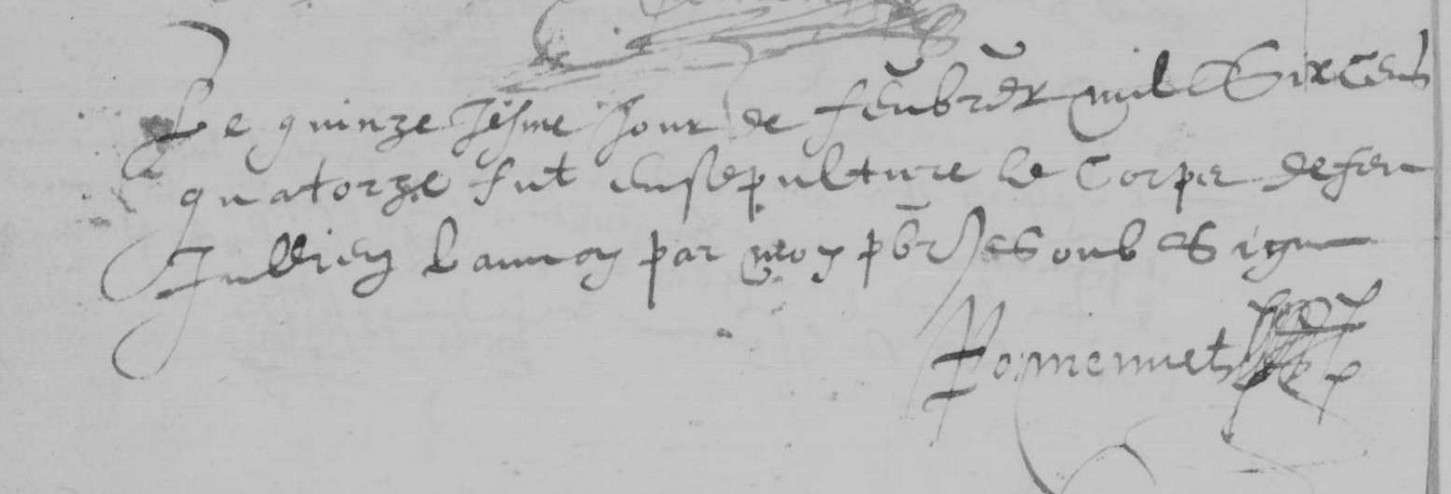 Le quinze jesme jour de febvrier mil Six Cens
quatorze fut ensepulture le Corps de feu
Jullien Launay par moy pbre soubSigne
Pommeniet